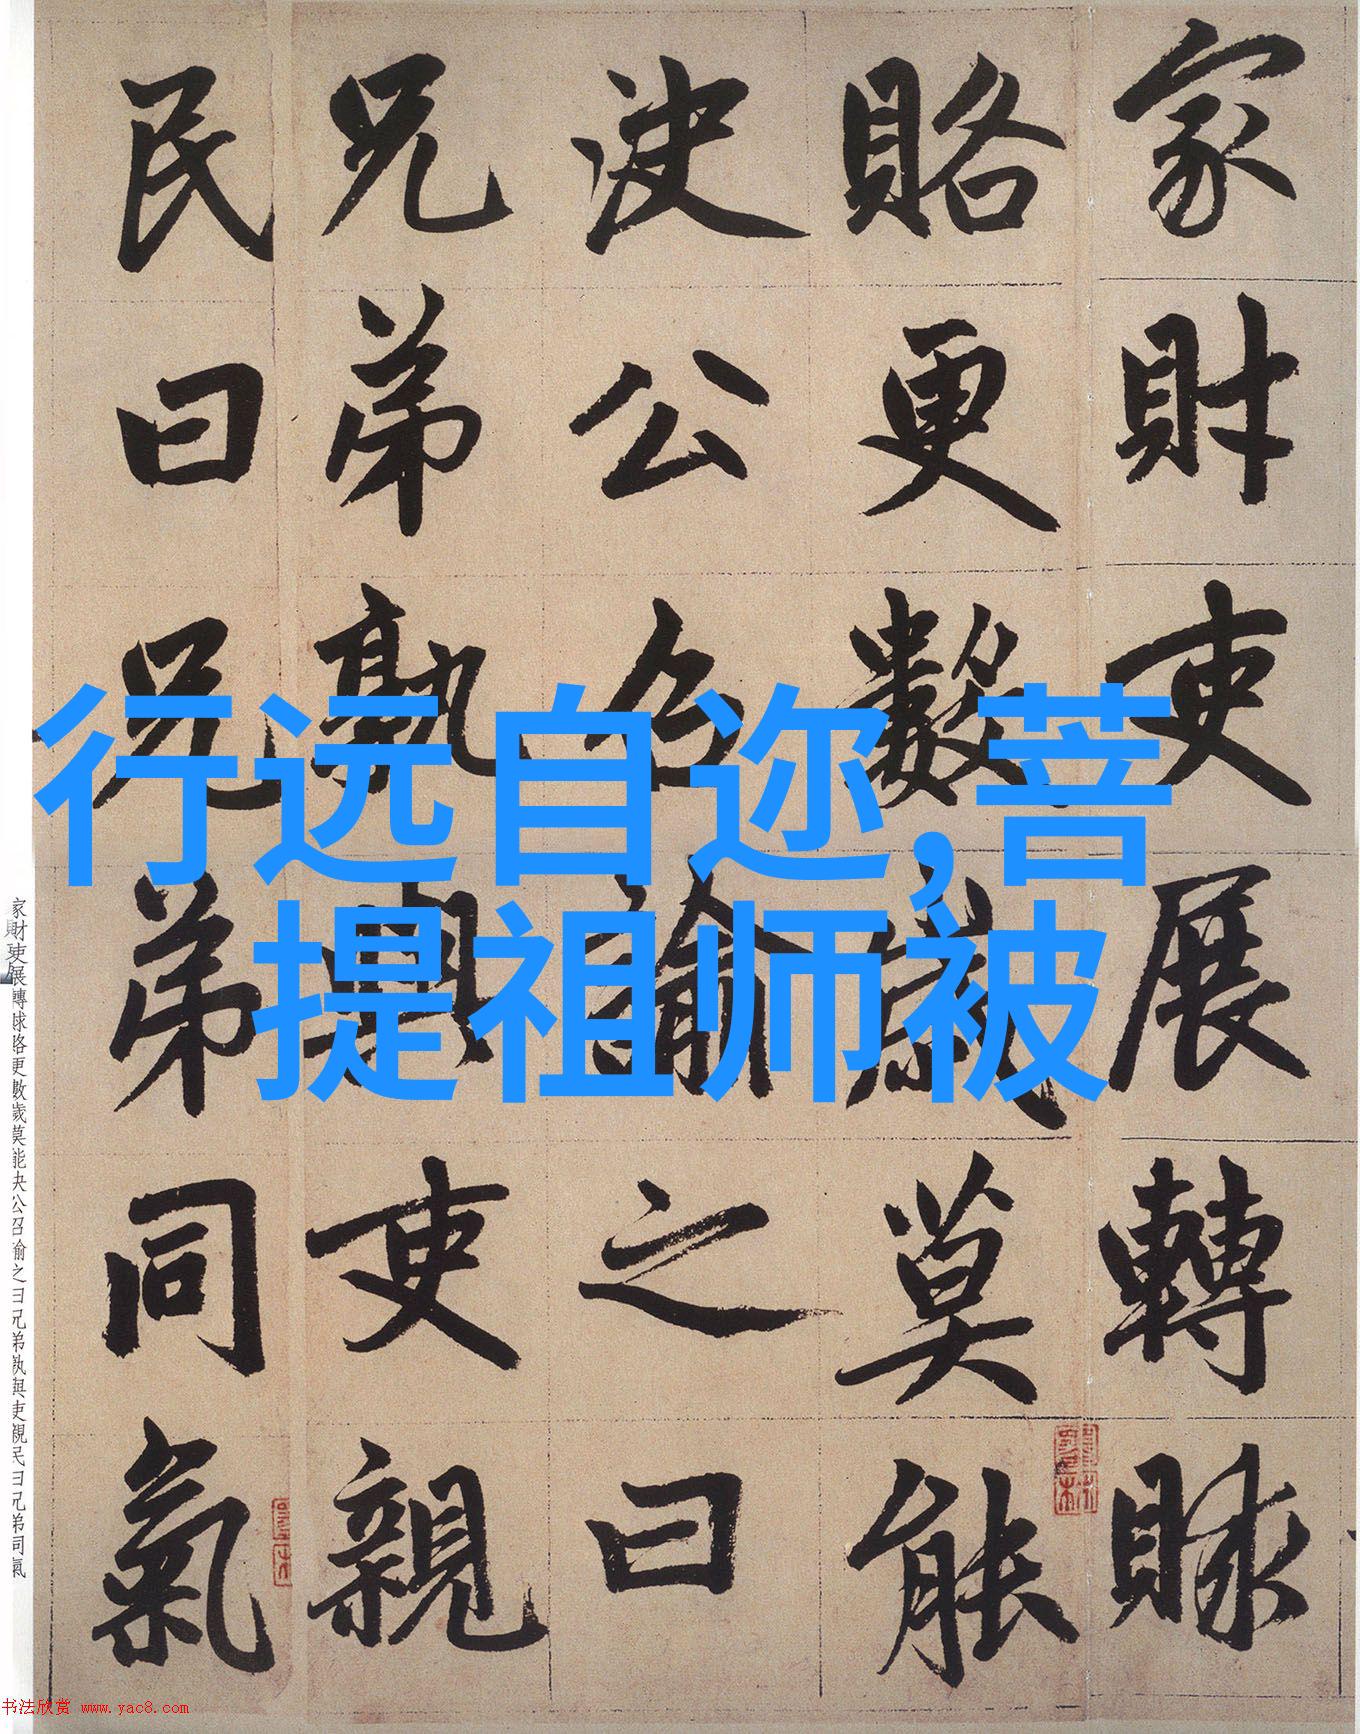 家財吏展轉賕
賂更數歲莫能
決公召諭之曰
兄弟孰與吏親
民曰兄弟同氣
行远自迩,菩
提祖师被
家財吏展轉賕賂更數歲莫能决公召諭之曰兄弟孰與吏親民曰兄弟同氣
书法欣赏 www.yac8.com